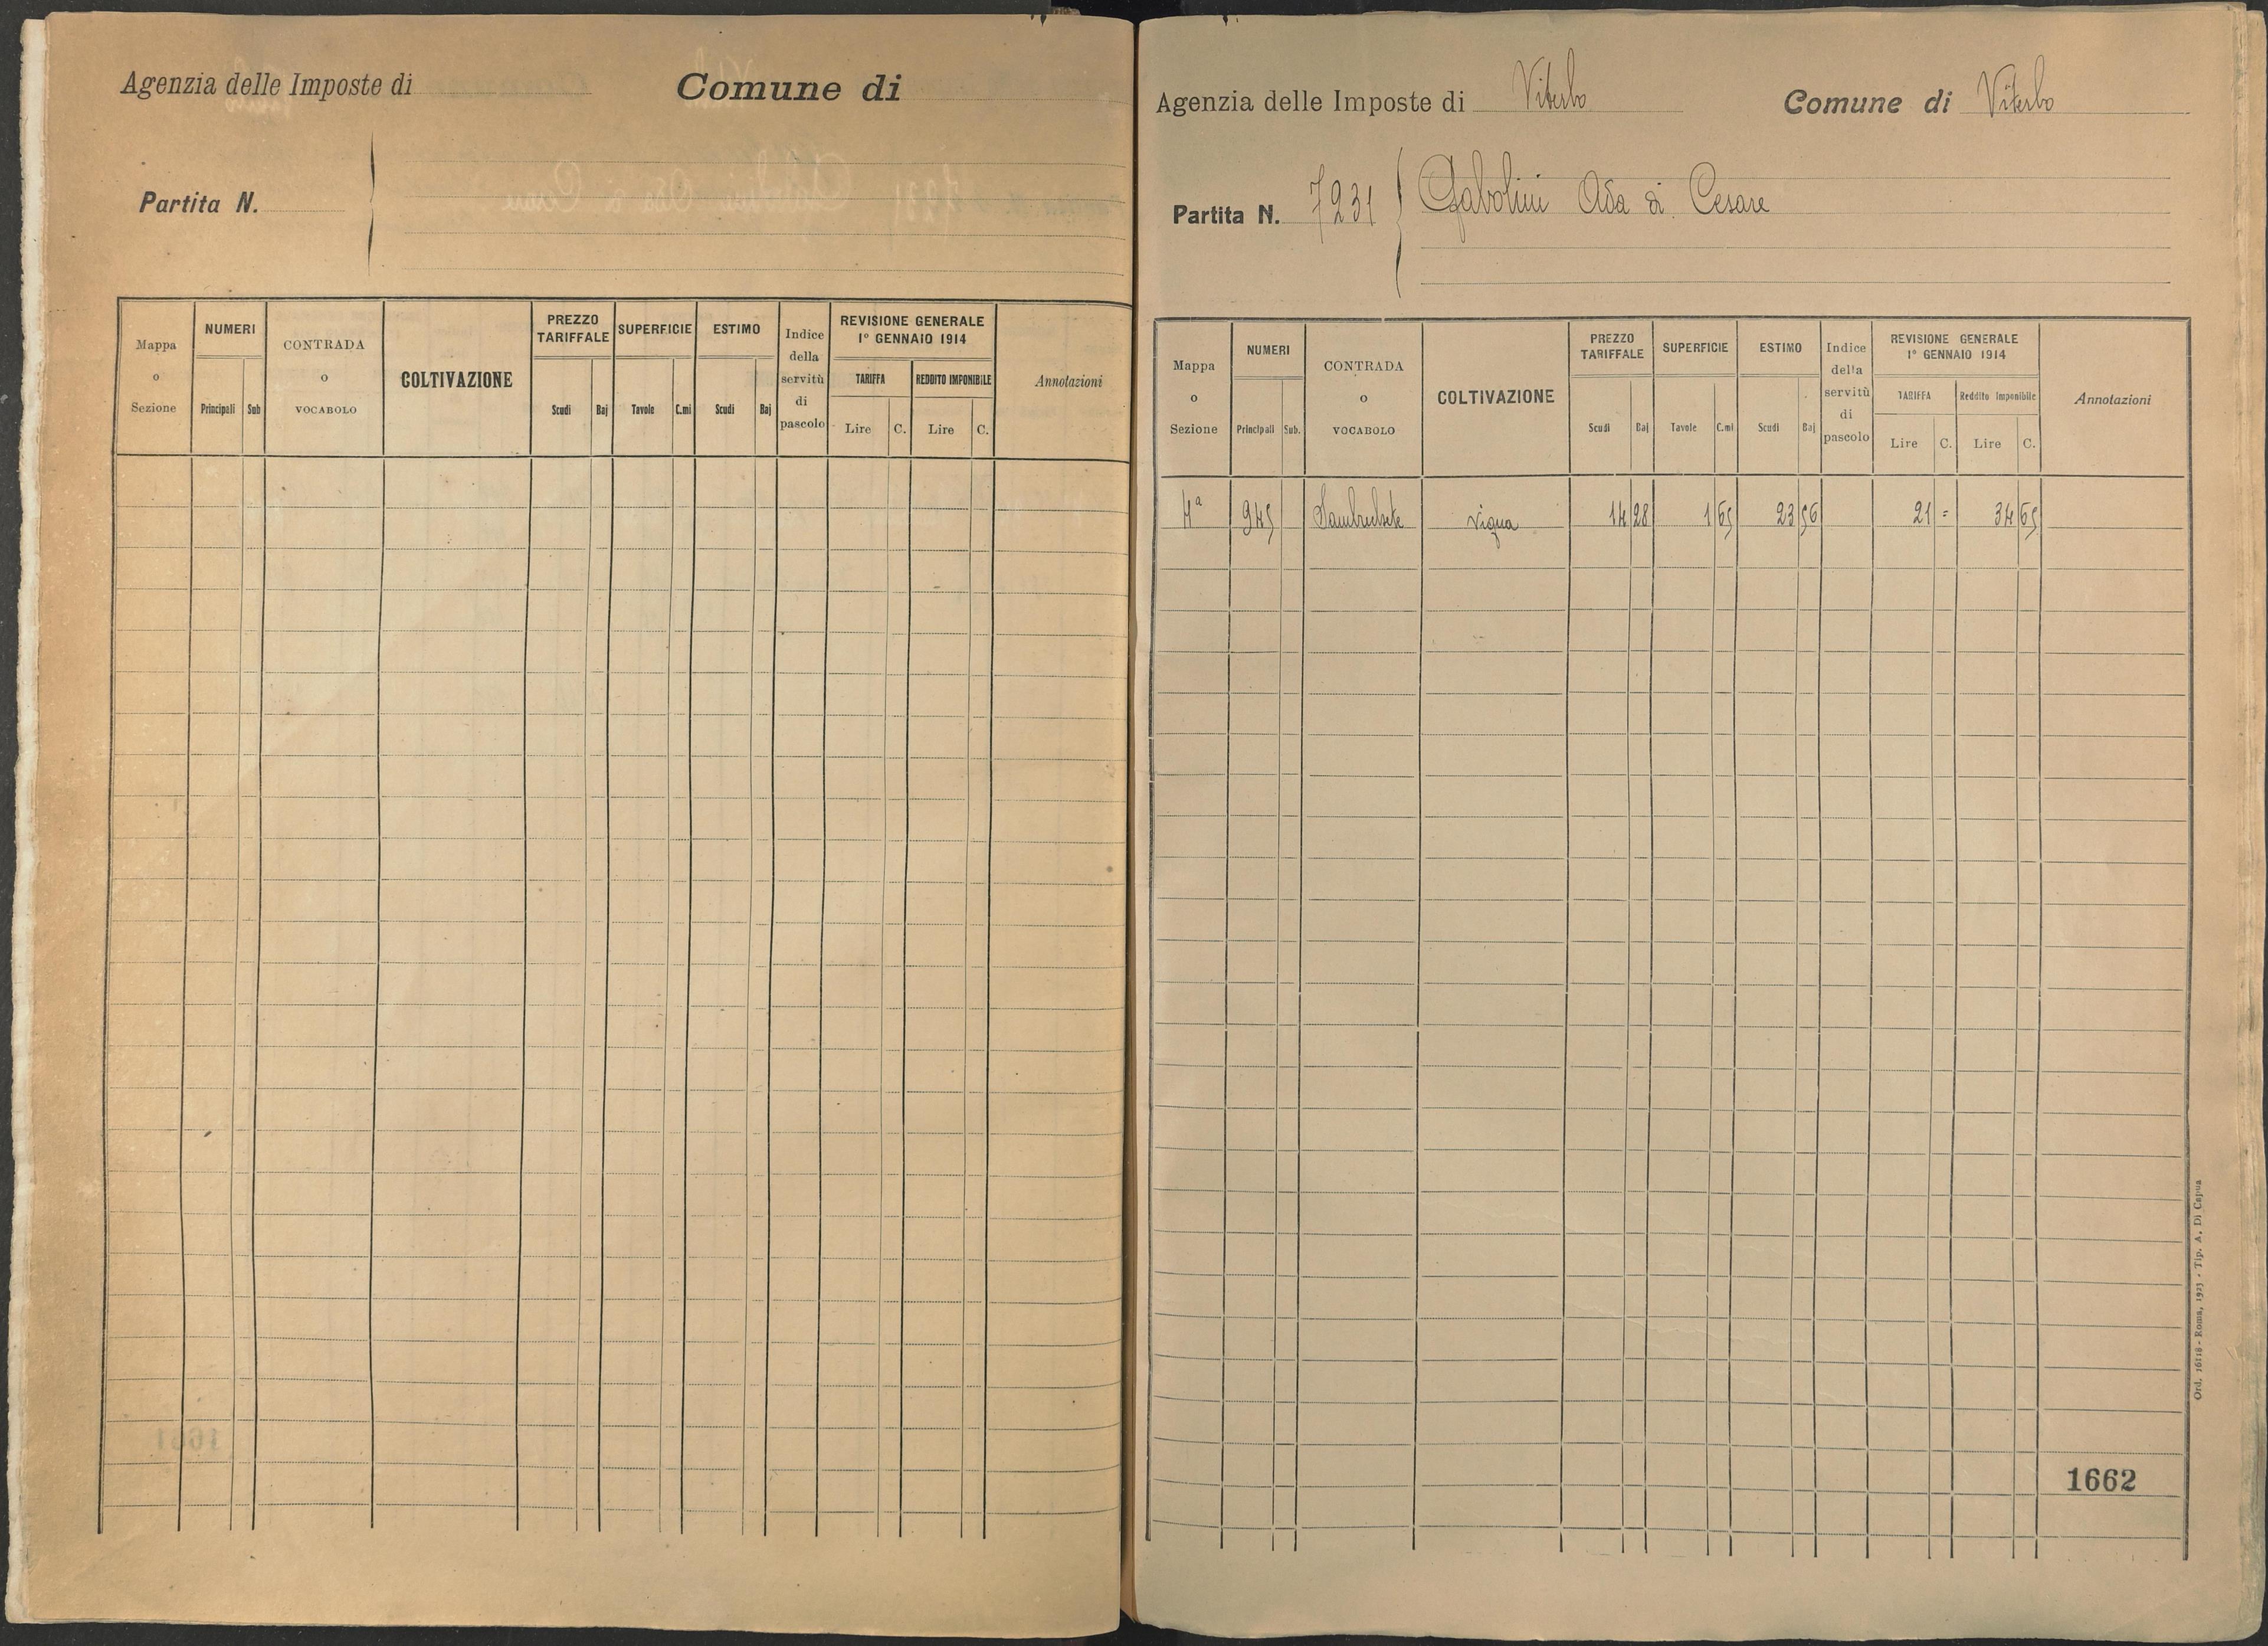 Agenzia delle Imposte di
Comune di
Partita N.
Mappa o Sezione
NUMERI
Principali Sub
CONTRADA o VOCABOLO
COLTIVAZIONE
PREZZO TARIFFALE
Scudi Baj
SUPERFICIE
Tavole C.mi
ESTIMO
Scudi Baj
Indice della servitù di pascolo
REVISIONE GENERALE
1° GENNAIO 1914
TARIFFA
Lire C.
REDDITO IMPONIBILE
Lire C.
Annotazioni
Agenzia delle Imposte di Viterbo Comune di Viterbo
Partita N. 7231 Gabolini Ada di Cesare
Mappa o Sezione
NUMERI
Principali Sub.
CONTRADA o VOCABOLO
COLTIVAZIONE
PREZZO TARIFFALE
Scudi Baj
SUPERFICIE
Tavole C.mi
ESTIMO
Scudi Baj
Indice della servitù di pascolo
REVISIONE GENERALE
1° GENNAIO 1914
TARIFFA
Lire C.
Reddito Imponibile
Lire C.
Annotazioni
4ª 945 vigna 14 28 1 65 23 56 21 = 34 65
1662
Ord. 16118 - Roma, 1923 - Tip. A. Di Capua